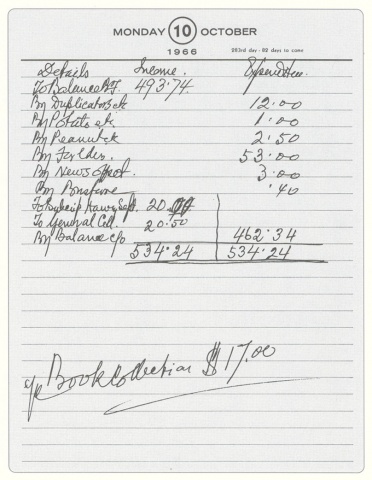 MONDAY 10 OCTOBER
1966 283rd day · 82 days to come
Details Income. Expenditure.
To Balance B/F. 493.74.
By Duplicator &c 12.00
By Potato etc 1.00
By Peanut &c 2.50
By 53.00
By News 3.00
By .40
To 20.00
To General Coll. 20.50
By Balance c/o 462.34
534.24 534.24
Book Collection $17.00